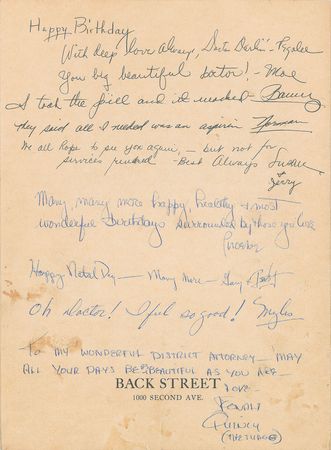 Happy Birthday
With deep love Always, Doctor Darlin'-
You big beautiful doctor! -
I took the pill and it worked -
They said all I needed was an aspirin Norman
We all hope to see you again, - but not for
services rendered - Best Always
Jerry
Many, many more happy, healthy & most
wonderful birthdays surrounded by those you love
Happy Natal Day - Many More -
Oh Doctor! I feel so good! Myles
TO MY WONDERFUL DISTRICT ATTORNEY - MAY
ALL YOUR DAYS BE AS BEAUTIFUL AS YOU ARE -
BACK STREET
1000 SECOND AVE.
LOVE -
QUINCY
(THE JUDGE)